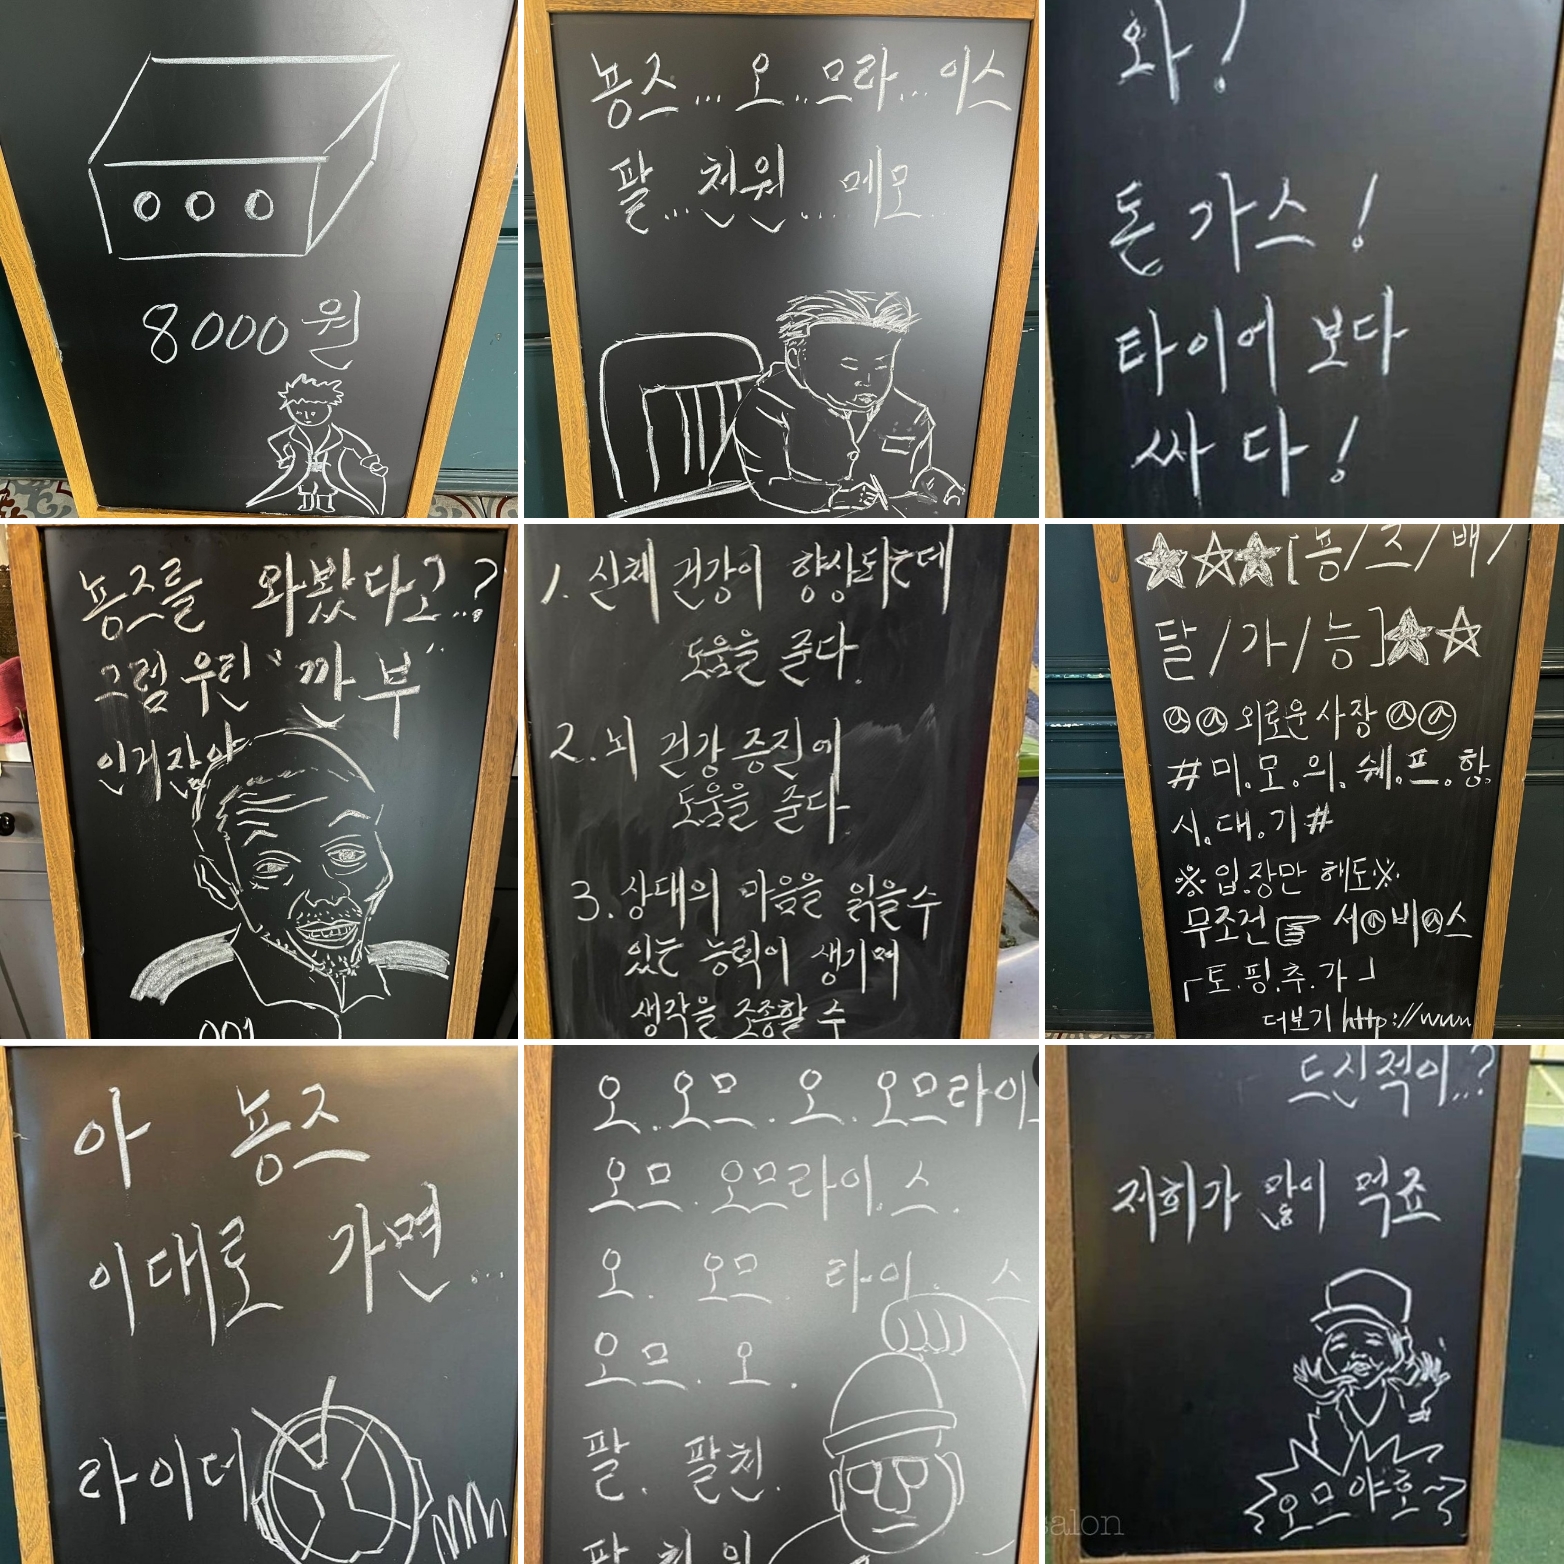 8000원
뇽즈... 오..므라... 이스
팔... 천원.... 메모..
와!
돈가스!
타이어 보다
싸다!
뇽즈를 와봤다고..?
그럼 우린 "깐부"
인거잖아
001
1. 신체 건강이 향상되는데
도움을 준다.
2. 뇌 건강 증진에
도움을 준다
3. 상대의 마음을 읽을수
있는 능력이 생기며
생각을 조종할 수
★☆★[뇽/즈/배/
달/가/능]★☆
외로운 사장
#미.모.의.쉐.프.항.
시.대.기#
※입.장만 해도※
무조건☞ 서비스
「토.핑.추.가」
더보기 http://www
아 뇽즈
이대로 가면...
라이더
오.오므.오.오므라이
오므.오므라이.스.
오. 오므. 라이. 스
오므.오.
팔. 팔천.
팔천원
드신적이..?
저희가 많이 먹죠
오므야호~
salon